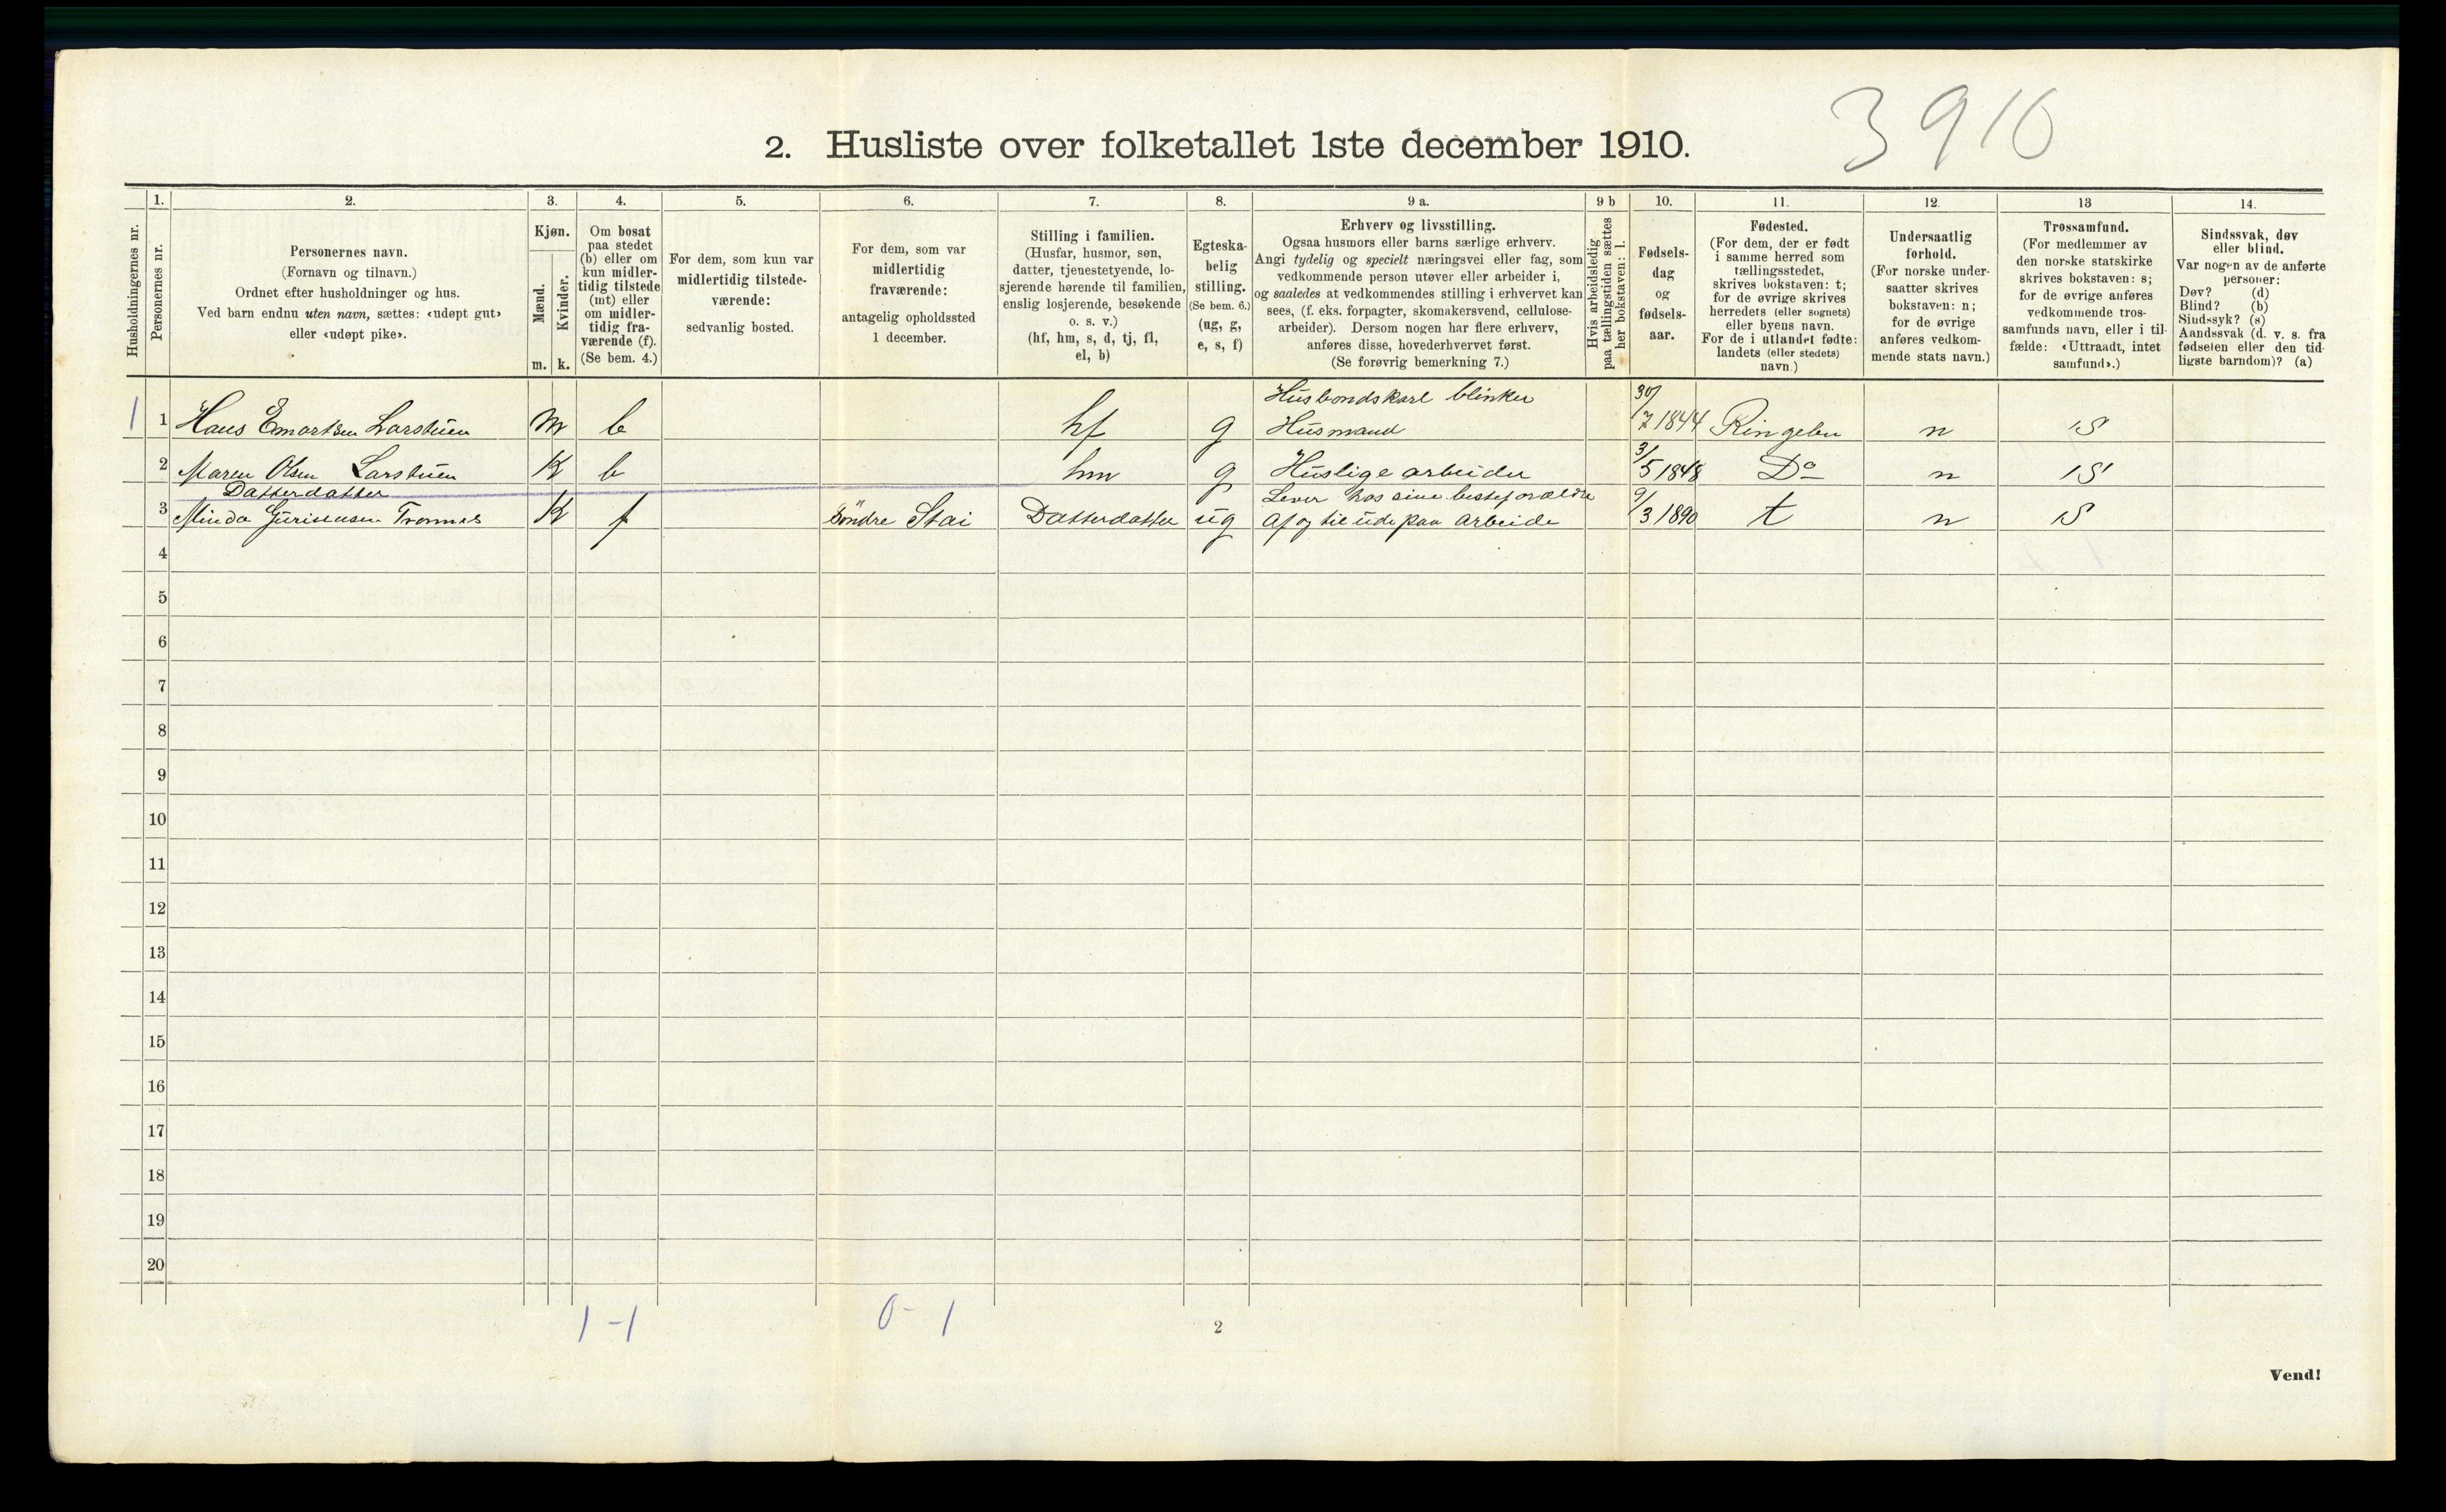 3910
2. Husliste over folketallet 1ste december 1910.
Husholdningernes nr.
1.
Personernes nr.
2.
Personernes navn.
(Fornavn og tilnavn.)
Ordnet efter husholdninger og hus.
Ved barn endnu uten navn, sættes: «udøpt gut»
eller «udøpt pike».
3.
Kjøn.
Mænd.
Kvinder.
m. k.
4.
Om bosat
paa stedet
(b) eller om
kun midler-
tidig tilstede
(mt) eller
om midler-
tidig fra-
værende (f).
(Se bem. 4.)
5.
For dem, som kun var
midlertidig tilstede-
værende:
sedvanlig bosted.
6.
For dem, som var
midlertidig
fraværende:
antagelig opholdssted
1 december.
7.
Stilling i familien.
(Husfar, husmor, søn,
datter, tjenestetyende, lo-
sjerende hørende til familien,
enslig losjerende, besøkende
o. s. v.)
(hf, hm, s, d, tj, fl,
el, b)
8.
Egteska-
belig
stilling.
(Se bem. 6.)
(ug, g,
e, s, f)
9 a.
Erhverv og livsstilling.
Ogsaa husmors eller barns særlige erhverv.
Angi tydelig og specielt næringsvei eller fag, som
vedkommende person utøver eller arbeider i,
og saaledes at vedkommendes stilling i erhvervet kan
sees, (f. eks. forpagter, skomakersvend, cellulose-
arbeider). Dersom nogen har flere erhverv,
anføres disse, hovederhvervet først.
(Se forøvrig bemerkning 7.)
9 b
Hvis arbeidsledig
paa tællingstiden sættes
her bokstaven: l.
10.
Fødsels-
dag
og
fødsels-
aar.
11.
Fødested.
(For dem, der er født
i samme herred som
tællingsstedet,
skrives bokstaven: t;
for de øvrige skrives
herredets (eller sognets)
eller byens navn.
For de i utlandet fødte:
landets (eller stedets)
navn.)
12.
Undersaatlig
forhold.
(For norske under-
saatter skrives
bokstaven: n;
for de øvrige
anføres vedkom-
mende stats navn.)
13
Trossamfund.
(For medlemmer av
den norske statskirke
skrives bokstaven: s;
for de øvrige anføres
vedkommende tros-
samfunds navn, eller i til-
fælde: «Uttraadt, intet
samfund».)
14.
Sindssvak, døv
eller blind.
Var nogen av de anførte
personer:
Døv? (d)
Blind? (b)
Sindssyk? (s)
Aandssvak (d. v. s. fra
fødselen eller den tid-
ligste barndom)? (a)
Husbondskarl blinker
1 1 Hans Emortsen Larstuen m b hf g Husmand 30/7 1844 Ringebu n S
2 Maren Olsen Larstuen K b hm g Huslige arbeider 3/5 1848 Do n S
Datterdatter
Lever hos sine besteforældre
3 Minda Tromnes K f Söndre Stai Datterdatter ug af og til ude paa arbeide 9/3 1890 t n S
4
5
6
7
8
9
10
11
12
13
14
15
16
17
18
19
20
1-1 0-1
2
Vend!